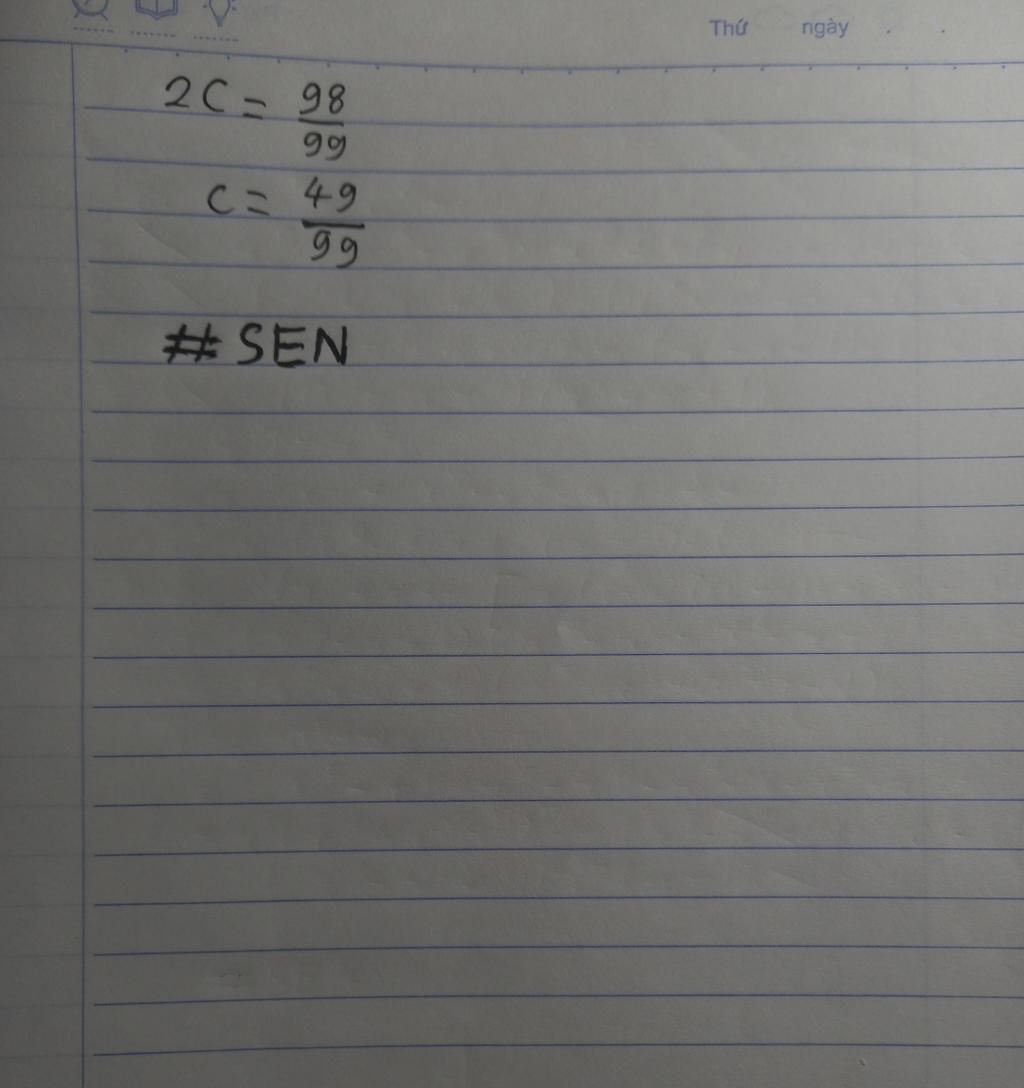 Thứ ngày . .
2C = 98/99
C = 49/99
# SEN